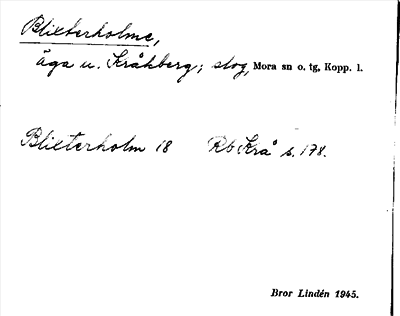 Blixterholme,
äga u. Kråkberg; skog, Mora sn o. tg, Kopp. l.
Blixterholm 18 Rb Krå s. 178.
Bror Lindén 1945.